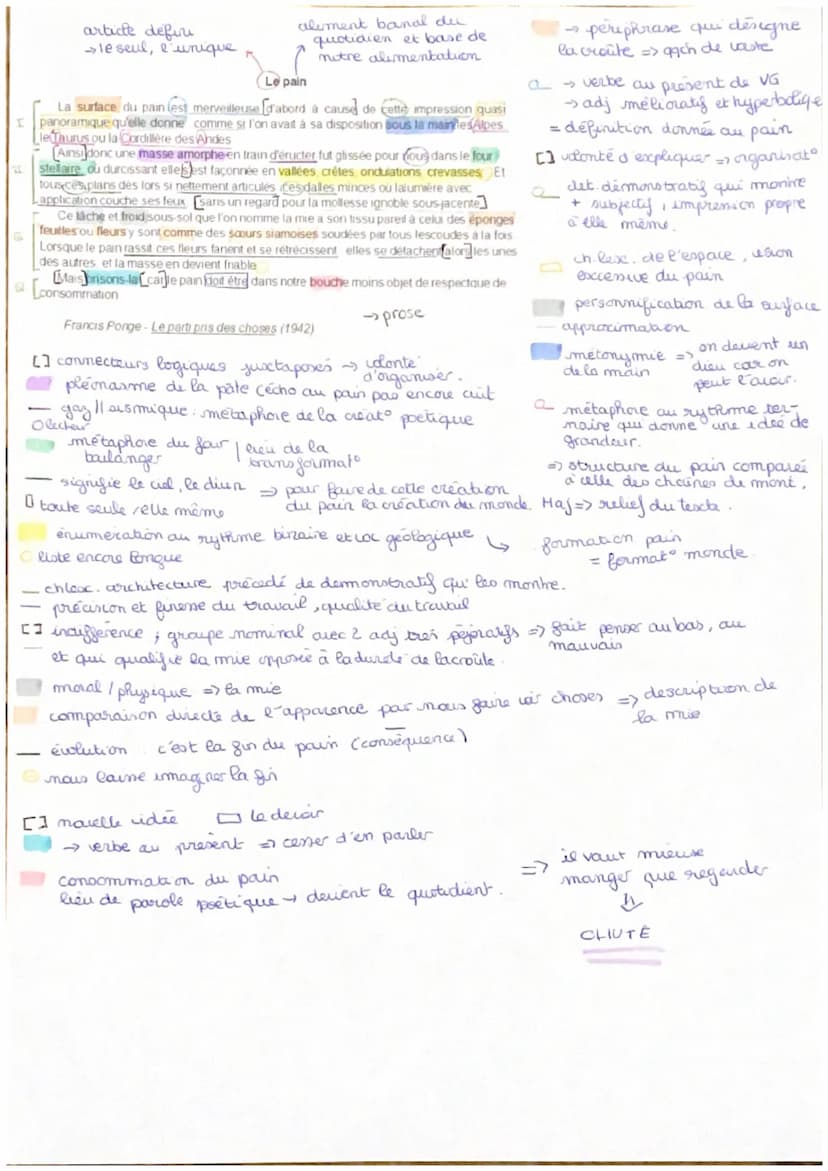 article défini
→ le seul, l'unique
aliment banal du
quotidien et base de
notre alimentation
Le pain
La surface du pain est merveilleuse d'abord à cause de cette impression quasi
panoramique qu'elle donne comme si l'on avait à sa disposition sous la main les Alpes,
le Taurus ou la Cordillère des Andes
I
Ainsi donc une masse amorphe en train d'éructer fut glissée pour nous dans le four
stellaire, où durcissant elle s'est façonnée en vallées, crêtes, ondulations, crevasses. Et
tous ces plans dès lors si nettement articulés, ces dalles minces où la lumière avec
application couche ses feux, sans un regard pour la mollesse ignoble sous-jacente
Ce lâche et froid sous-sol que l'on nomme la mie a son tissu pareil à celui des éponges
feuilles ou fleurs y sont comme des sœurs siamoises soudées par tous les coudes à la fois
Lorsque le pain rassit ces fleurs fanent et se rétrécissent elles se détachent alors les unes
des autres et la masse en devient friable
Mais brisons-la car le pain doit être dans notre bouche moins objet de respect que de
consommation
→ prose
Francis Ponge - Le parti pris des choses (1942)
→ périphrase qui désigne
la croûte => qqch de vaste
→ verbe au présent de VG
→ adj mélioratif et hyperbolique
= définition donnée au pain
[] volonté d'expliquer => organisat°
det. démonstratif qui montre
+ subjectif, impression propre
à elle même.
ch lex. de l'espace, vision
excessive du pain
personnification de la surface
approximation
métonymie =>
de la main
on devient un
dieu car on
peut l'avoir.
métaphore au rythme ter-
naire qui donne une idée de
grandeur.
=> structure du pain comparée
à celle des chaînes de mont.
Maj => relief du texte.
[] connecteurs logiques juxtaposés → volonté
d'organiser.
pléonasme de la pâte (écho au pain pas encore cuit
gaz // sismique : métaphore de la créat° poétique
O lecteur
métaphore du four
boulanger
lieu de la
transformat°
signifie le ciel, le divin => pour faire de cette création
du pain la création du monde.
toute seule / elle même
énumération au rythme binaire et voc géologique
formation pain
= format° monde.
liste encore longue
ch lex. architecture précédé de démonstratif qui les montre.
précision et finesse du travail, qualité du travail
[] indifférence ; groupe nominal avec 2 adj très péjoratifs => fait penser au bas, au
mauvais
et qui qualifie la mie opposée à la dureté de la croûte.
moral / physique => la mie
comparaison directe de l'apparence par nous faire voir choses => description de
la mie
évolution c'est la fin du pain (conséquence)
nous laisse imaginer la fin
[] nouvelle idée
le devoir
→ verbe au présent => cesser d'en parler
consommation du pain
lieu de parole poétique → devient le quotidient.
=> il vaut mieuse
manger que regarder
CHUTE